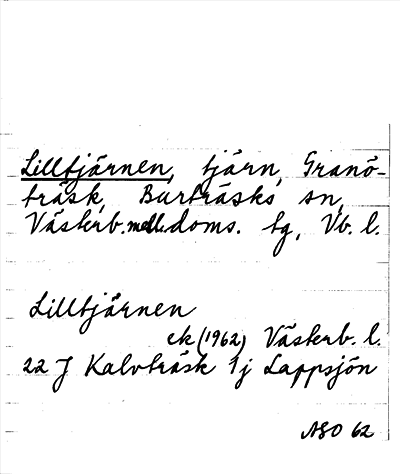 Lilltjärnen, tjärn, Granö-
träsk, Burträsks sn,
Västerb. mell. doms. tg, Vb. l.
Lilltjärnen
ek (1962) Västerb. l.
22 J Kalvträsk 1 j Lappsjön
ASO 62